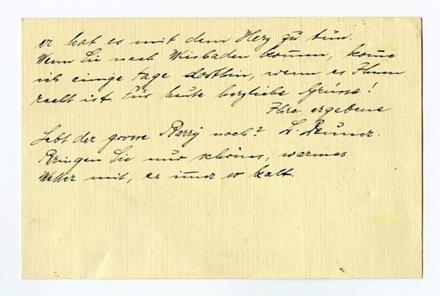 er hat es mit dem Herz zu tun.
Wenn Sie nach Wiesbaden komen, kome
ich einige Tage dorthin, wenn es Ihnen
recht ist. Für heute herzliche Grüsse!
Ihre ergebene
Lebt der grosse Barry noch? L.
Bringen Sie nur schönes, warmes
Wetter mit, es imer so kalt